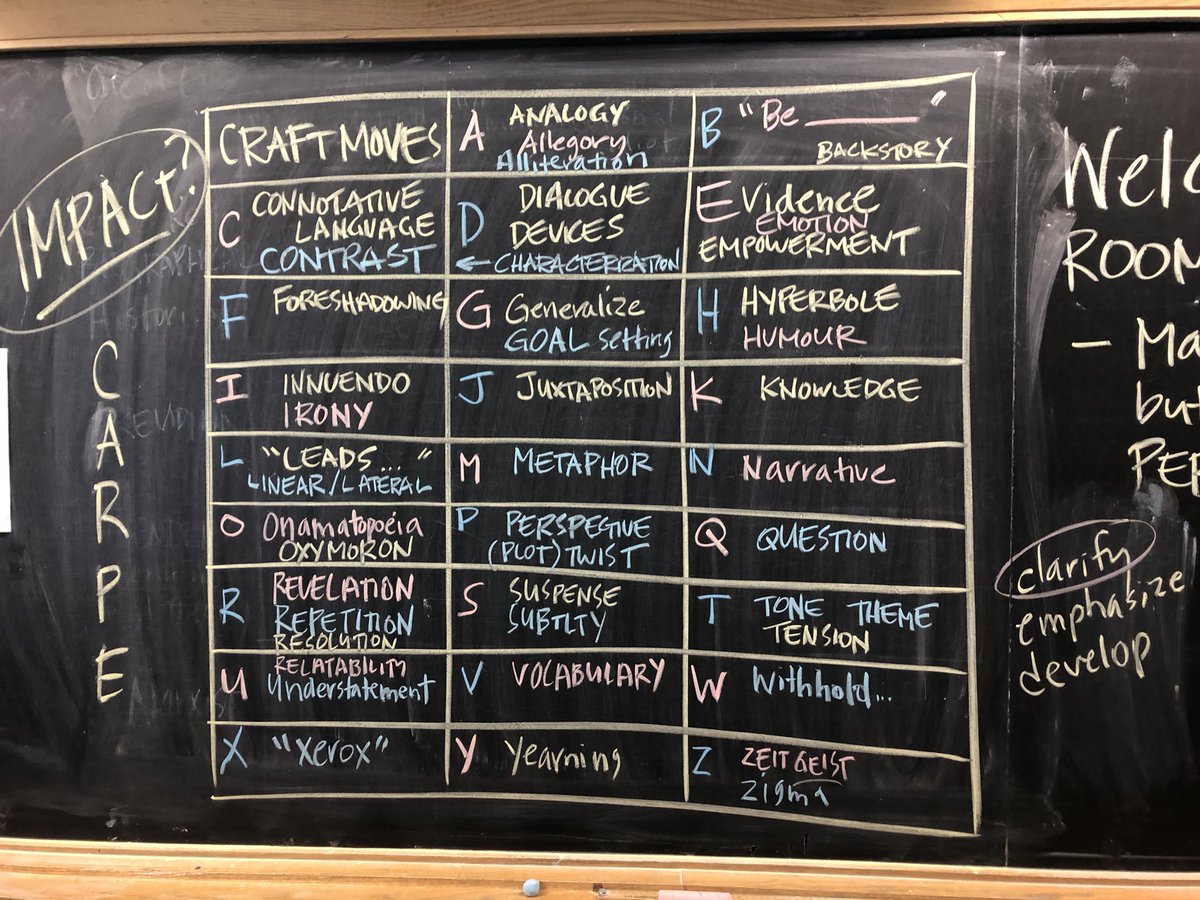 IMPACT?
CARPE
CRAFT MOVES
A ANALOGY
Allegory
Alliteration
B "Be ______"
BACKSTORY
C CONNOTATIVE
LANGUAGE
CONTRAST
D DIALOGUE
DEVICES
← CHARACTERIZATION
EVidence
EMOTION
EMPOWERMENT
F FORESHADOWING
G Generalize
GOAL setting
H HYPERBOLE
HUMOUR
I INNUENDO
IRONY
J JUXTAPOSITION
K KNOWLEDGE
L "LEADS..."
LINEAR/LATERAL
M METAPHOR
N Narrative
O Onamatopoeia
OXYMORON
P PERSPECTIVE
(PLOT) TWIST
Q QUESTION
R REVELATION
REPETITION
RESOLUTION
S SUSPENSE
SUBTLTY
T TONE THEME
TENSION
RELATABILITY
U Understatement
V VOCABULARY
W Withhold...
X "Xerox"
Y Yearning
Z ZEITGEIST
Zigma
Welc
ROOM
- Ma
but
PER
clarify
emphasize
develop